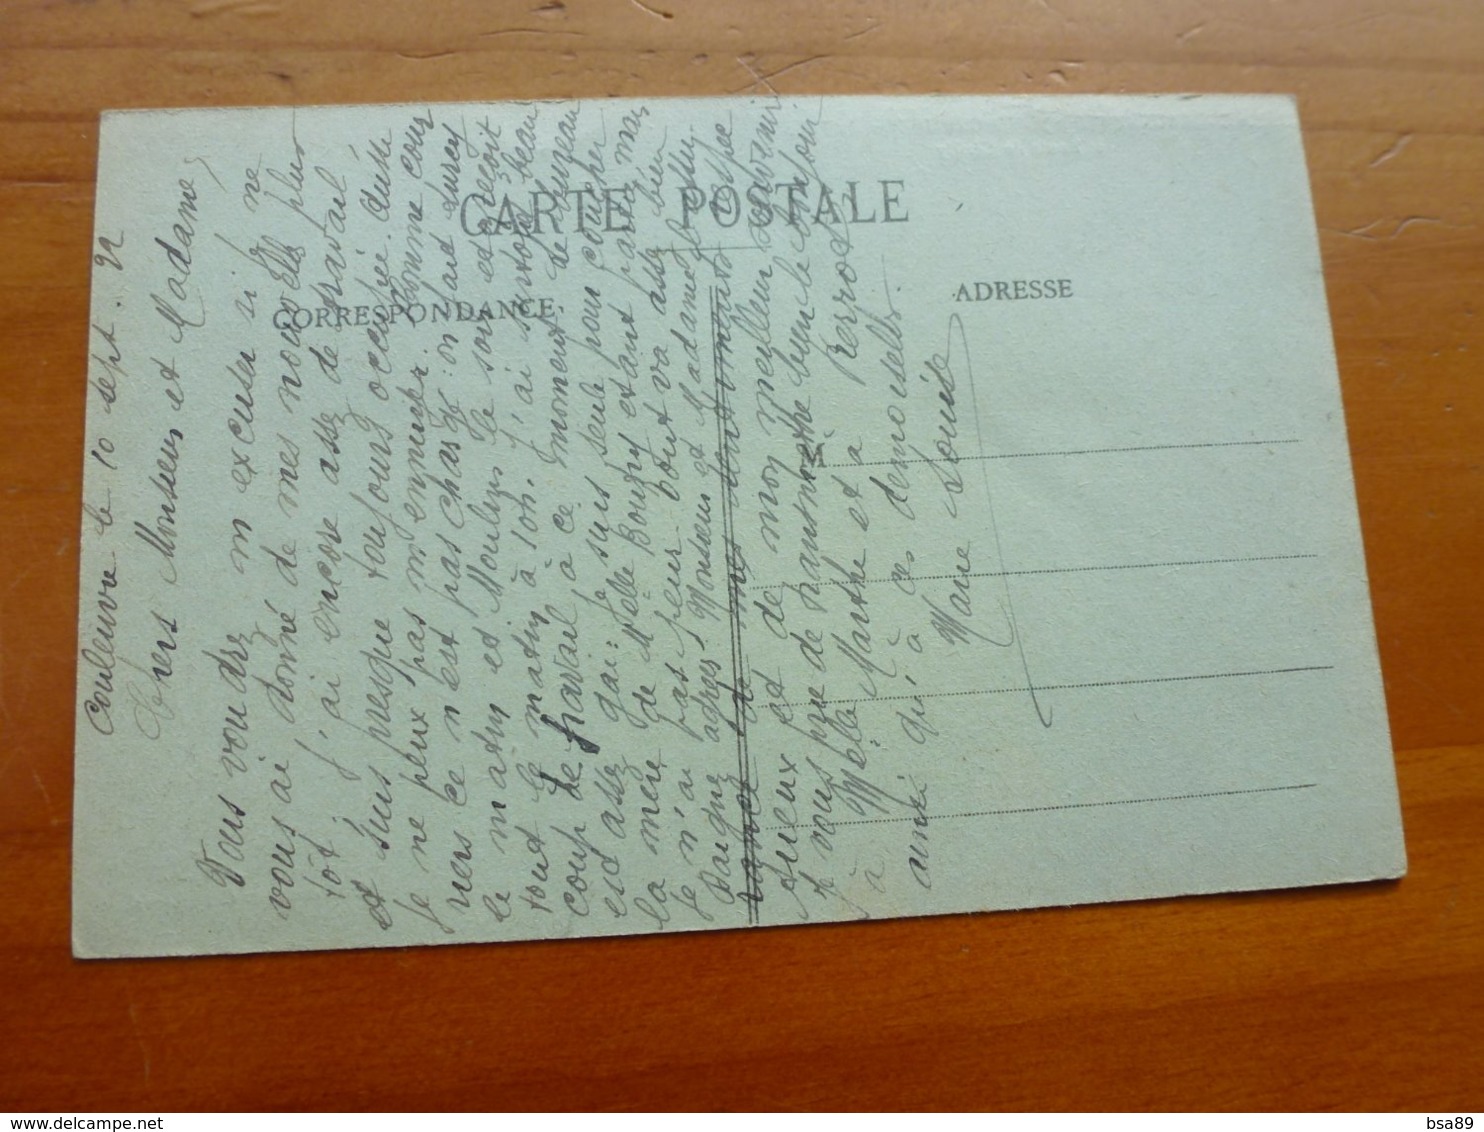 CARTE POSTALE
CORRESPONDANCE
ADRESSE
M
Couleuvre le 10 sept. 22
Chers Monsieur et Madame,
Vous voudrz m excuser si je ne
vous ai donné de mes nouvelle plus
tôt j'ai encore assez de travail
et suis presque toujours occupée. aussi
je ne peux pas m ennuyer.
vers ce n est pas chargé: on fait
le matin et Moulins le soir et reçoit
tout le matin à 10h. J'ai
coup de travail à ce moment. le bureau
est assez gai: je suis seule pour coucher
la mère de Melle étant partie mais
je n'ai pas peur tout va assez bien
adres. Monsieur et Madame
de mes
et de mon meilleur souvenir
je vous prie de transmettre bien le bonjour
à Melle Marthe et à Perrod
ainsi qu'à ces demoiselles.
Marie Louise
bsa89